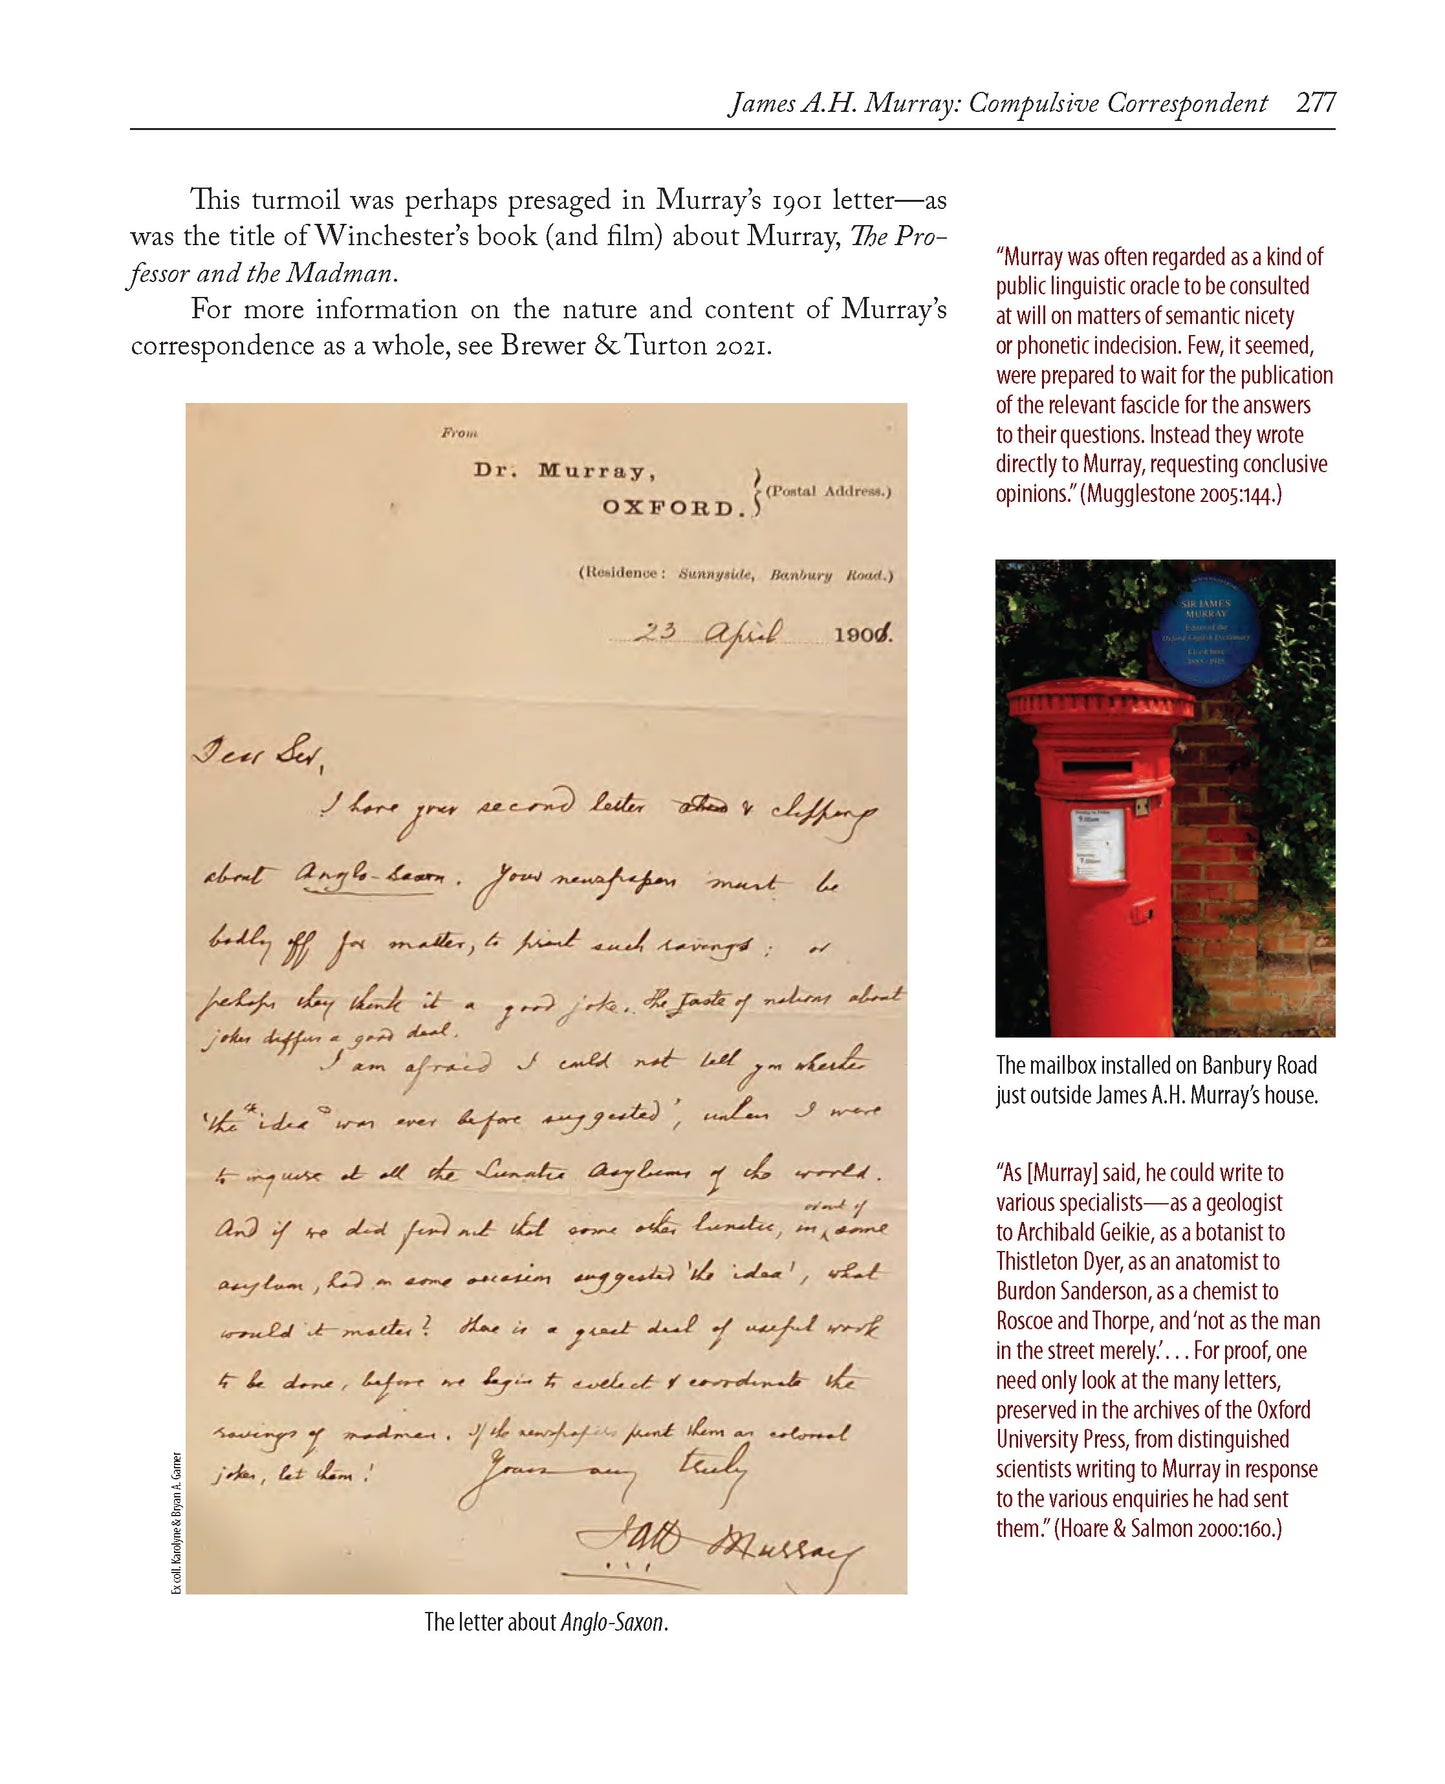 James A.H. Murray: Compulsive Correspondent 277
This turmoil was perhaps presaged in Murray’s 1901 letter—as
was the title of Winchester’s book (and film) about Murray, The Pro-
fessor and the Madman.
For more information on the nature and content of Murray’s
correspondence as a whole, see Brewer & Turton 2021.
From
Dr. Murray,
OXFORD.
(Postal Address.)
(Residence: Sunnyside, Banbury Road.)
23 April 1901.
Dear Sir,
I have your second letter & clipping
about Anglo-Saxon. Your newspapers must be
badly off for matter, to print such ravings; or
perhaps they think it a good joke. The taste of nations about
jokes differs a good deal.
I am afraid I could not tell you whether
‘the “idea” was ever before suggested’, unless I were
to inquire at all the Lunatic Asylums of the world.
And if we did find out that some other lunatic, in or out of some
asylum, had on some occasion suggested ‘the idea’, what
would it matter? There is a great deal of useful work
to be done, before we begin to collect & coordinate the
ravings of madmen. If the newspapers print them as colossal
jokes, let them!
Yours very truly
JAH Murray
Ex coll. Karolyne & Bryan A. Garner
The letter about Anglo-Saxon.
“Murray was often regarded as a kind of
public linguistic oracle to be consulted
at will on matters of semantic nicety
or phonetic indecision. Few, it seemed,
were prepared to wait for the publication
of the relevant fascicle for the answers
to their questions. Instead they wrote
directly to Murray, requesting conclusive
opinions.” (Mugglestone 2005:144.)
SIR JAMES
MURRAY
Editor of the
Oxford English Dictionary
Lived here
1885-1915
9.00am
7.00am
The mailbox installed on Banbury Road
just outside James A.H. Murray’s house.
“As [Murray] said, he could write to
various specialists—as a geologist
to Archibald Geikie, as a botanist to
Thistleton Dyer, as an anatomist to
Burdon Sanderson, as a chemist to
Roscoe and Thorpe, and ‘not as the man
in the street merely.’. . . For proof, one
need only look at the many letters,
preserved in the archives of the Oxford
University Press, from distinguished
scientists writing to Murray in response
to the various enquiries he had sent
them.” (Hoare & Salmon 2000:160.)